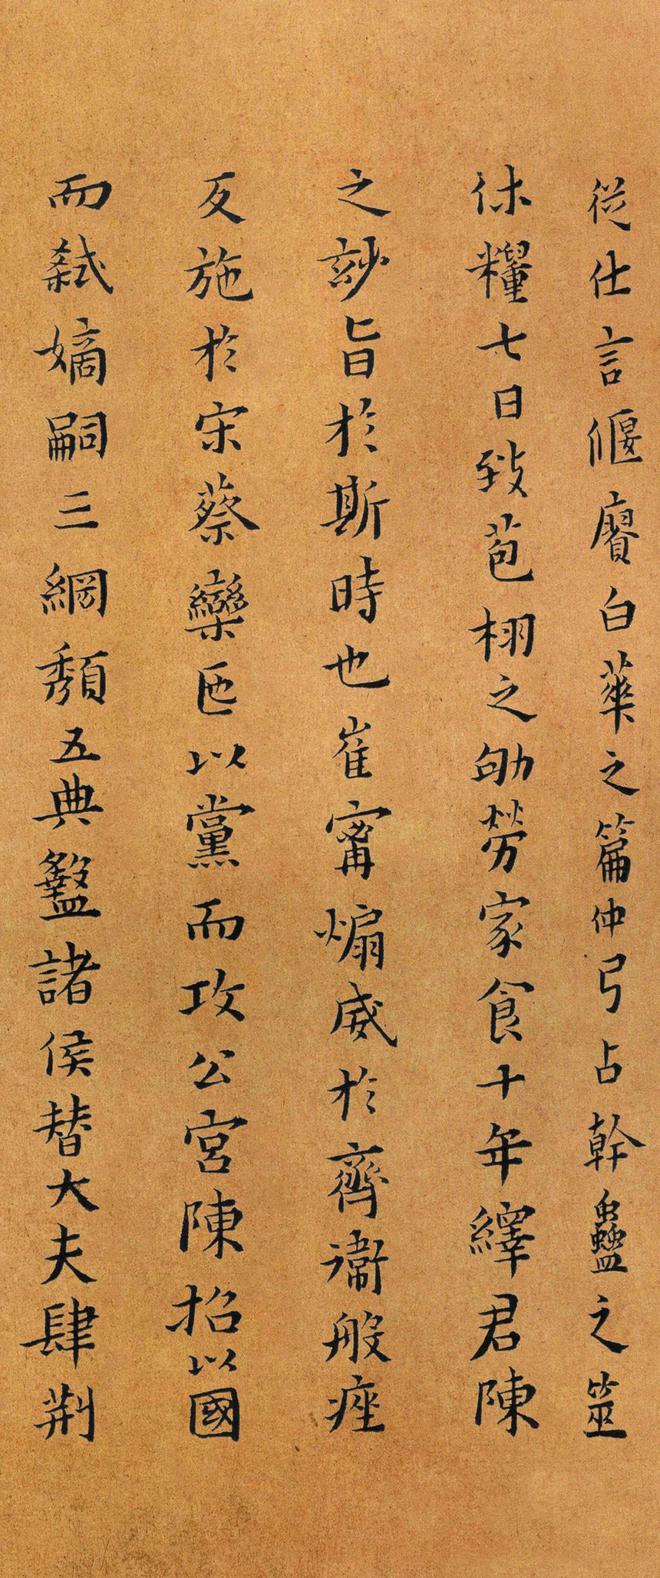 從仕言偃賡白華之篇仲弓占幹蠱之筮
休糧七日致苞栩之劬勞家食十年繹君陳
之妙旨於斯時也崔甯煽威於齊衛般痤
反施於宋蔡欒逆以黨而攻公宮陳招以國
而弒嫡嗣三綱頹五典盭諸侯替大夫肆荆